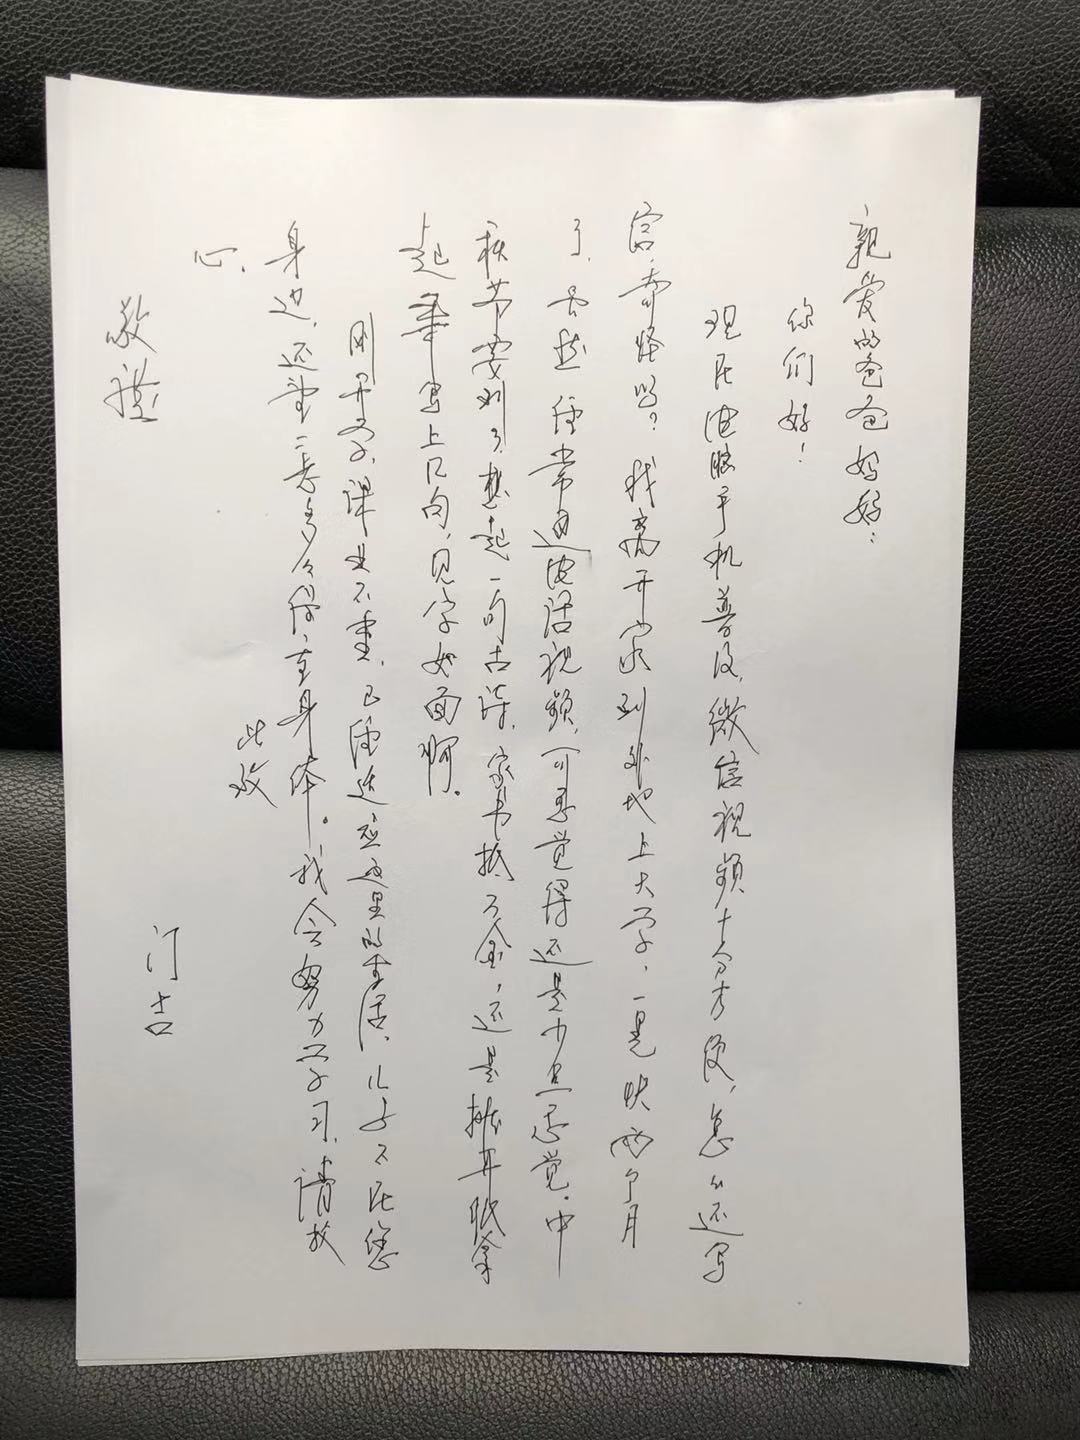 亲爱的爸爸妈妈：
你们好！
现在电脑手机普及，微信视频十分方便，怎么还写
信，奇怪吗？我离开家到外地上大学，一晃快两个月
了，虽然经常通电话视频，可总觉得还是少点感觉。中
秋节要到了，想起一句古诗，家书抵万金，还是摊开纸拿
起笔写上几句，见字如面啊。
刚开学，课业不重，已经适应这里的生活，儿子不在您
身边，还望二老多多保重身体。我会努力学习，请放
心，
此致
敬礼